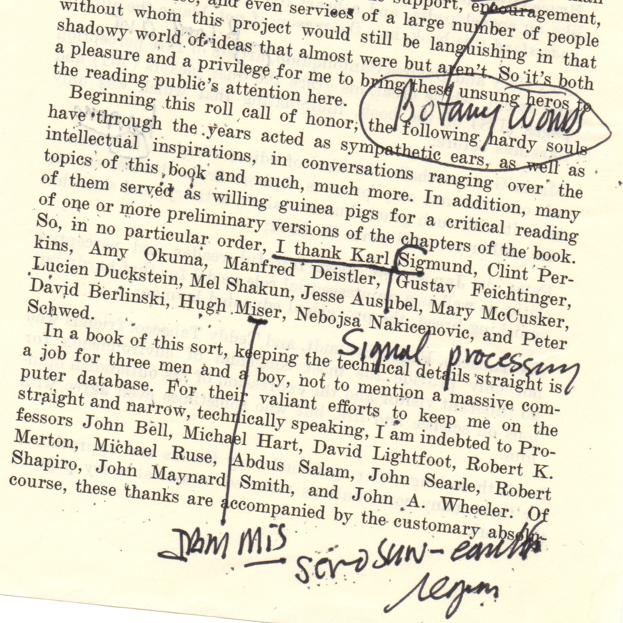 support, encouragement,
and even services of a large number of people
without whom this project would still be languishing in that
shadowy world of ideas that almost were but aren't. So it's both
a pleasure and a privilege for me to bring these unsung heros to
the reading public's attention here.
Botany Wombs
Beginning this roll call of honor, the following hardy souls
have through the years acted as sympathetic ears, as well as
intellectual inspirations, in conversations ranging over the
topics of this book and much, much more. In addition, many
of them served as willing guinea pigs for a critical reading
of one or more preliminary versions of the chapters of the book.
So, in no particular order, I thank Karl Sigmund, Clint Per-
kins, Amy Okuma, Manfred Deistler, Gustav Feichtinger,
Lucien Duckstein, Mel Shakun, Jesse Ausubel, Mary McCusker,
David Berlinski, Hugh Miser, Nebojsa Nakicenovic, and Peter
Schwed.
Signal processing
In a book of this sort, keeping the technical details straight is
a job for three men and a boy, not to mention a massive com-
puter database. For their valiant efforts to keep me on the
straight and narrow, technically speaking, I am indebted to Pro-
fessors John Bell, Michael Hart, David Lightfoot, Robert K.
Merton, Michael Ruse, Abdus Salam, John Searle, Robert
Shapiro, John Maynard Smith, and John A. Wheeler. Of
course, these thanks are accompanied by the customary absolu-
IBM MIS
sun-earth